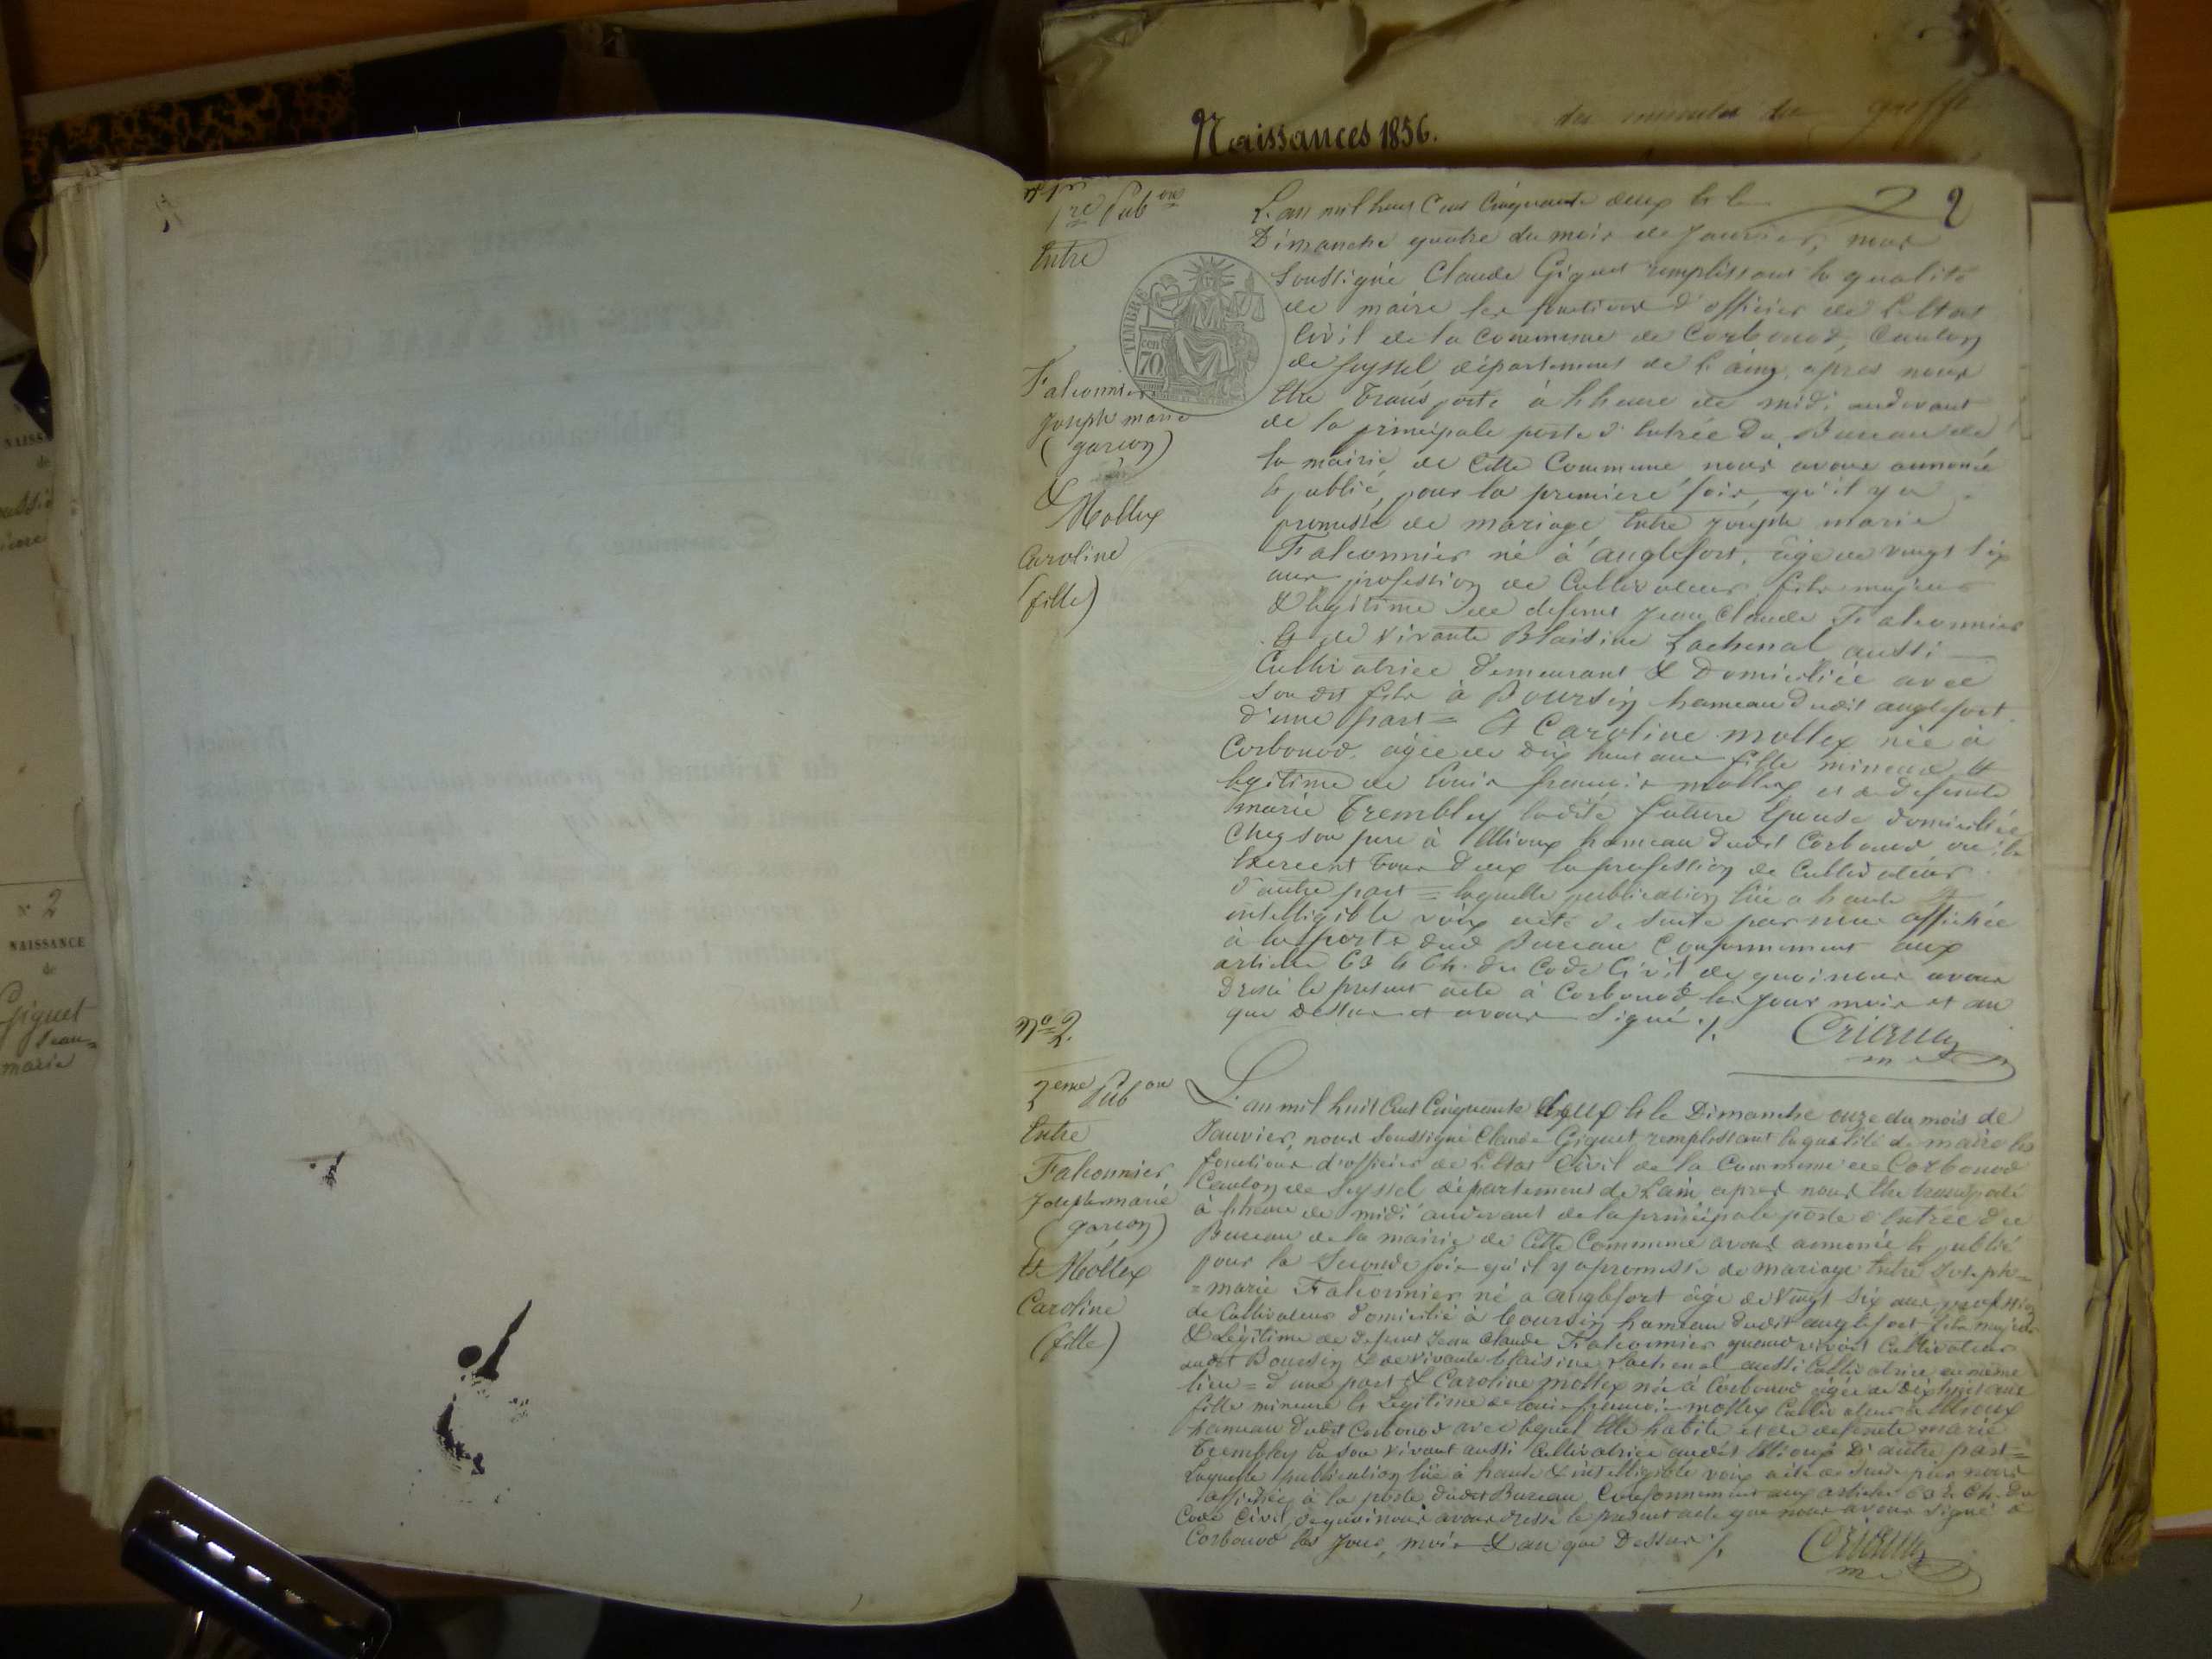 Naissances 1856.
du greffe
2
1re Pubon
Entre
Falconnier
Joseph marie
(garçon)
&
Mollex
Caroline
(fille)
TIMBRE
cen
70
L'an mil huit Cent Cinquante deux & le
Dimanche quatre du mois de Janvier, nous
Soussigné Claude Giguet remplissant la qualité
de maire les fonctions d'officier de l'Etat
Civil de la Commune de Corbonod, Canton
de Seyssel département de l'ain, après nous
être transporté à l'heure de midi audevant
de la principale porte d'Entrée du Bureau de
la mairie de Cette Commune nous avons annoncé
& publié, pour la premiere fois, qu'il y a
promesse de mariage, Entre Joseph marie
Falconnier né à anglefort, âgé de vingt six
ans profession de Cultivateur, fils majeur
& légitime de defunt Jean Claude Falconnier
& de vivante Blaisine Lachenal aussi
Cultivatrice demeurant & Domiciliée avec
son dit fils à Boursin hameau dudit anglefort
d'une part = & Caroline mollex née à
Corbonod, agée de dix huit ans fille mineure &
légitime de Louis françois mollex et de defunte
marie Trembley ladite future Epouse domiciliée
Chez son pere à Etlioux hameau dudit Corbonod, où ils
Exercent tous deux la profession de Cultivateur
d'autre part = laquelle publication lüe a haute &
intelligible voix acté de suite par nous affichée
à la porte dud Bureau Conformement aux
articles 63 & 64 du Code Civil de quoi nous avons
Dressé le present acte à Corbonod les jour mois et an
que Dessus et avons Signé ./.
No 2.
2eme Pubon
Entre
Falconnier
Joseph marie
(garçon)
& Mollex
Caroline
(fille)
L'an mil huit Cent Cinquante deux & le Dimanche onze du mois de
Janvier, nous Soussigné Claude Giguet remplissant la qualité de maire les
fonctions d'officier de l'Etat Civil de la Commune de Corbonod
Canton de Seyssel département de L'ain après nous être transporté
à l'heure de midi audevant de la principale porte d'Entrée du
Bureau de la mairie de Cette Commune avons annoncée & publié
pour la Seconde fois qu'il y a promesse de mariage Entre Joseph=
=marie Falconnier né a anglefort âgé de vingt six ans, profession
de Cultivateur domicilié à Boursin hameau dudit anglefort fils majeur
& Légitime de defunt Jean Claude Falconnier quand vivait Cultivateur
audit Boursin & de vivante blaisine Lachenal aussi Cultivatrice au même
lieu = d'une part & Caroline mollex née à Corbonod agée de dix huit ans
fille mineure & Légitime de Louis françois mollex Cultivateur à Etlioux
hameau dudit Corbonod avec lequel Elle habite et de defunte marie
Trembley En son vivant aussi Cultivatrice audit Etlioux D'autre part =
Laquelle publication lüe à haute & intelligible voix acte de suite par nous
affichée à la porte dudit Bureau Conformement aux articles 63 & 64 du
Code Civil, de quoi nous avons dressé le present acte que nous avons signé à
Corbonod les Jour, mois & an que Dessus ./.
No 2
NAISSANCE
de
Giguet
Jean=
marie